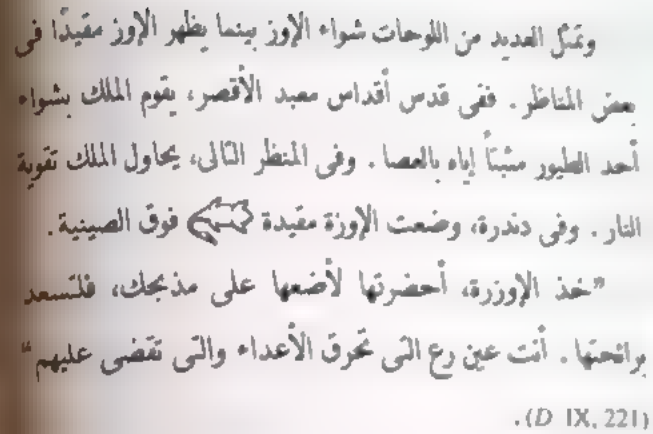 وتمثل العديد من اللوحات شواء الإوز بينما يظهر الإوز مقيدًا فى
بعض المناظر. ففى قدس أقداس معبد الأقصر، يقوم الملك بشواء
أحد الطيور مثبتاً إياه بالعصا. وفى المنظر التالى، يحاول الملك تقوية
النار. وفى دندرة، وضعت الإوزة مقيدة فوق الصينية.
"خذ الإوزرة، أحضرتها لأضعها على مذبحك، فلتسعد
برائحتها. أنت عين رع التى تحرق الأعداء والتى تقضى عليهم"
(D IX, 221).